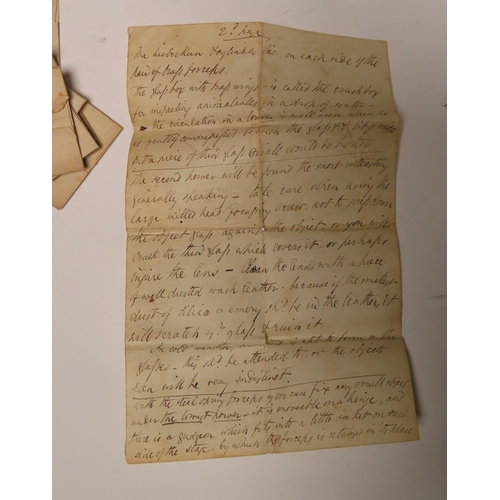 2d page
the Lieberkun Daylight &c. on each side of the
pair of brass forceps.
the box with brass wings - is called the crush box
for inspecting animalcules in a drop of water -
the circulation in a is well seen when the
is gently compressed between the glass
but a piece of thin glass will be better
the second power will be found the most interesting
generally speaking - take care when using the
large milled head focusing screw not to press down
the object glass against the object or you will
crack the thin glass which covers it - or perhaps
injure the lens - Clean the lenses with a piece
of well dusted wash leather - because if the smallest
dust of silica or emery shd. be in the leather, it
will scratch yr. glass & ruin it
In cold weather is apt to form on the
glasses - this shd. be attended to - or the object
seen will be very indistinct.
with the steel spring forceps you can fix any small object
under the lowest power - it is movable on a hinge, and
there is a gudgeon which fits into a little socket on each
side of the stage - by which the forceps is retained in its place